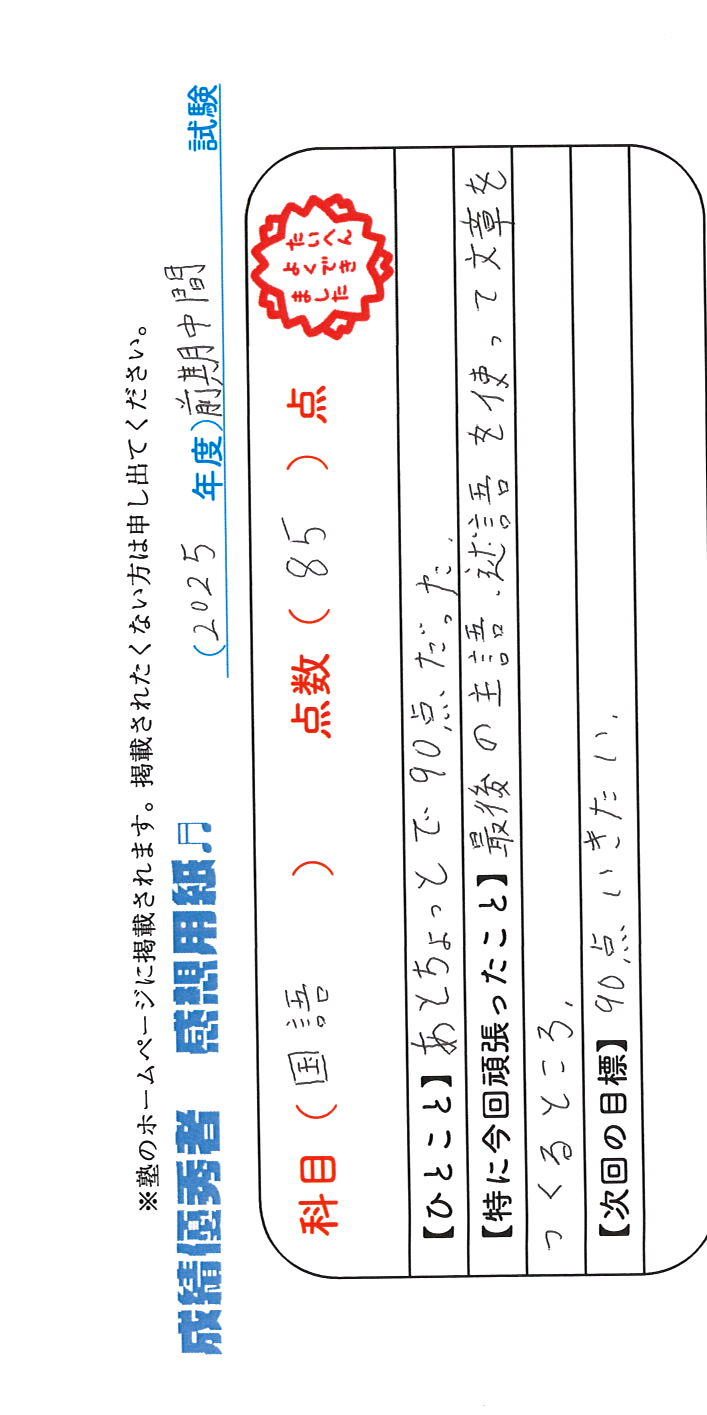 ※塾のホームページに掲載されます。掲載されたくない方は申し出てください。
成績優秀者 感想用紙♫ (2025 年度)前期中間 試験
科目(国語) 点数(85)点
たいへん
よくでき
ました
【ひとこと】あとちょっとで90点だった.
【特に今回頑張ったこと】最後の主語.述語を使って文章を
つくるところ.
【次回の目標】90点いきたい.